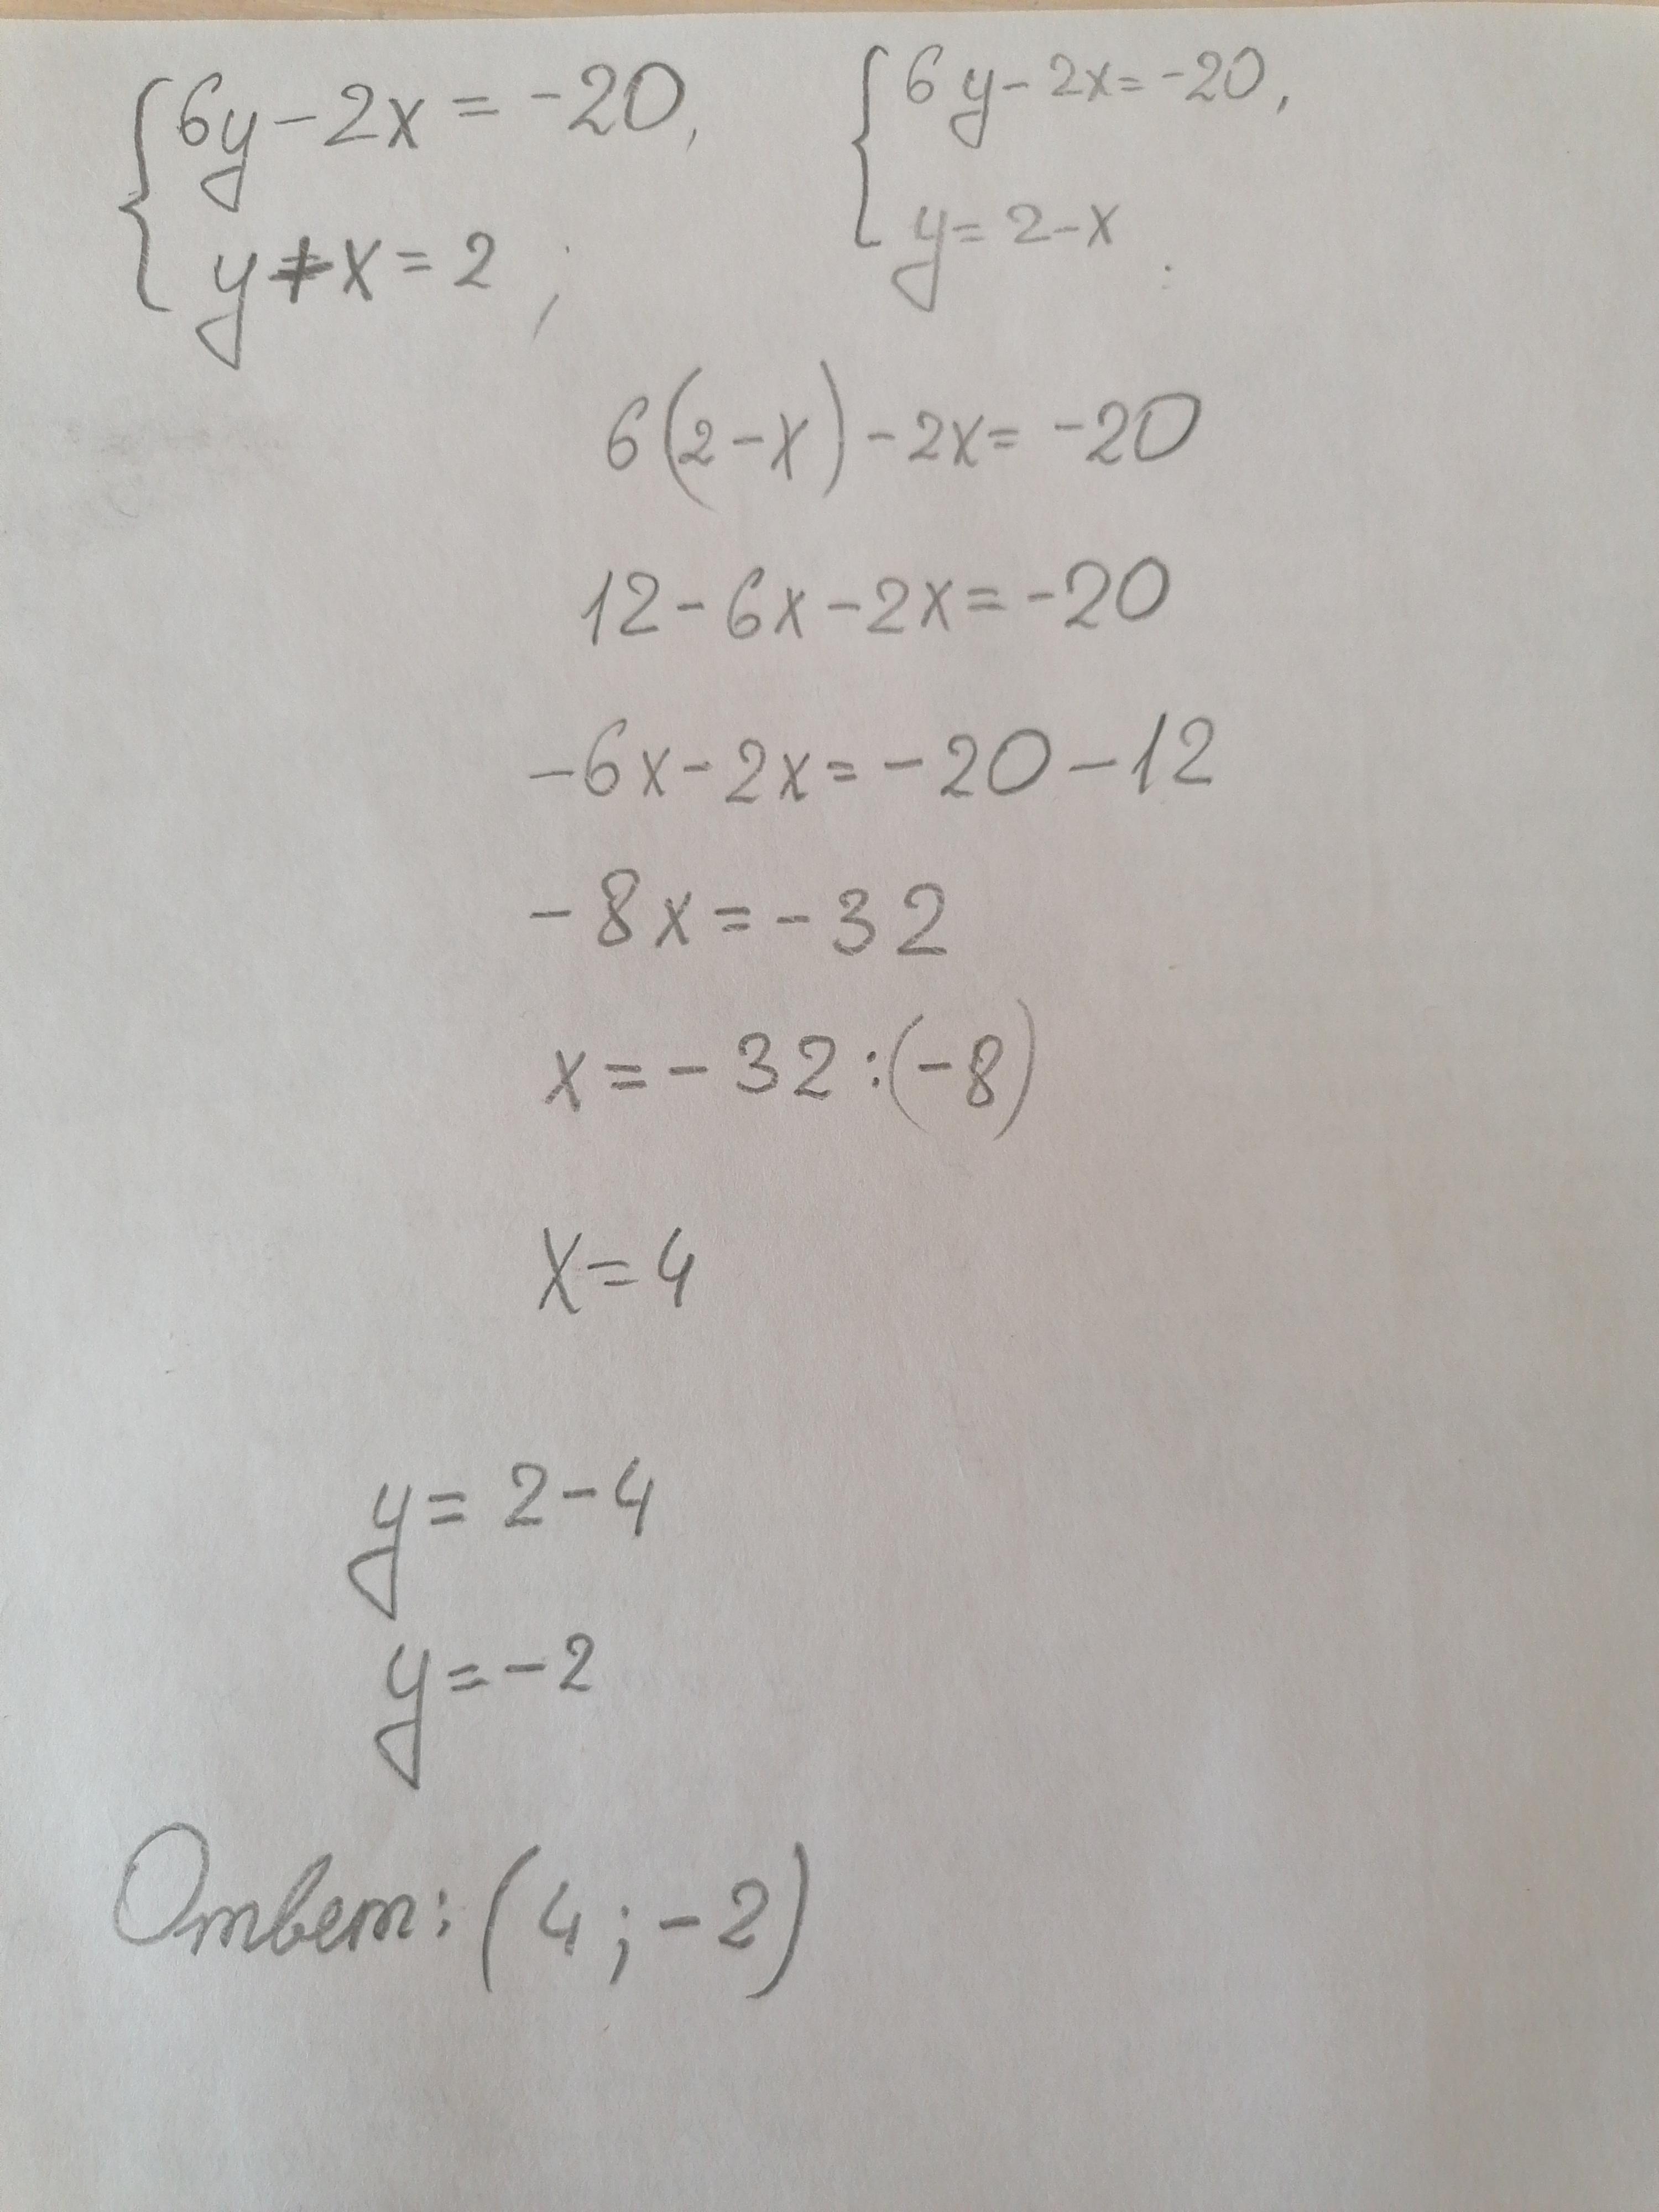 { 6y - 2x = -20,
y + x = 2 ;
{ 6y - 2x = -20,
y = 2 - x
6(2 - x) - 2x = -20
12 - 6x - 2x = -20
-6x - 2x = -20 - 12
-8x = -32
x = -32 : (-8)
x = 4
y = 2 - 4
y = -2
Ответ: (4 ; -2)